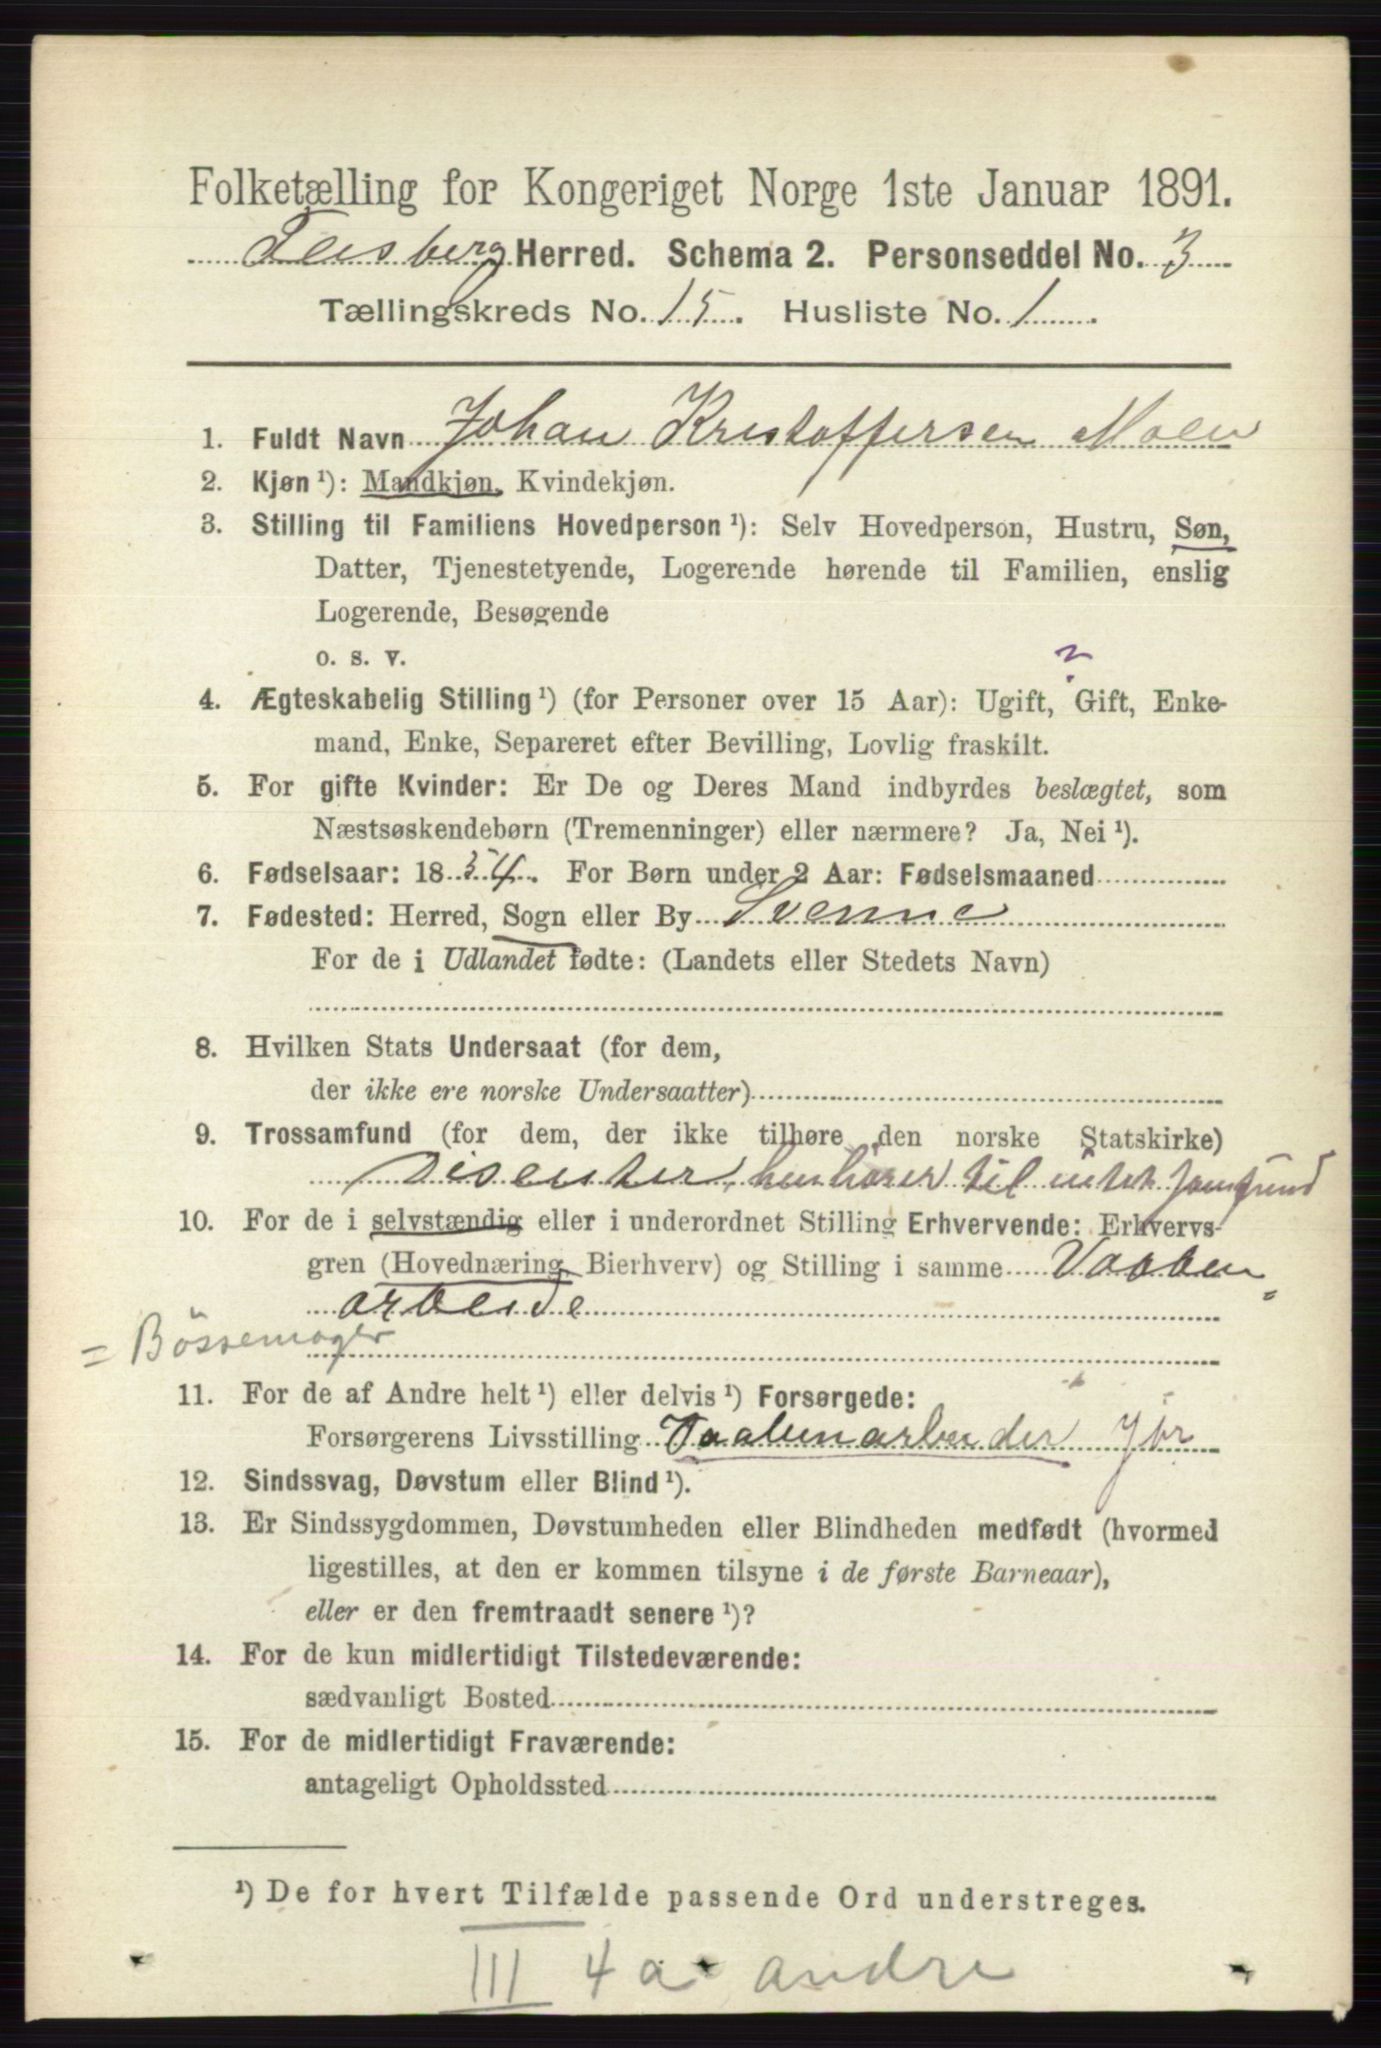 Folketælling for Kongeriget Norge 1ste Januar 1891.
Flesberg Herred. Schema 2. Personseddel No. 3
Tællingskreds No. 15. Husliste No. 1
1. Fuldt Navn Johan Kristoffersen Moen
2. Kjøn ¹): Mandkjøn, Kvindekjøn.
3. Stilling til Familiens Hovedperson ¹): Selv Hovedperson, Hustru, Søn,
Datter, Tjenestetyende, Logerende hørende til Familien, enslig
Logerende, Besøgende
o. s. v.
?
4. Ægteskabelig Stilling ¹) (for Personer over 15 Aar): Ugift, Gift, Enke-
mand, Enke, Separeret efter Bevilling, Lovlig fraskilt.
5. For gifte Kvinder: Er De og Deres Mand indbyrdes beslægtet, som
Næstsøskendebørn (Tremenninger) eller nærmere? Ja, Nei ¹).
6. Fødselsaar: 1854. For Børn under 2 Aar: Fødselsmaaned
7. Fødested: Herred, Sogn eller By Svenne
For de i Udlandet fødte: (Landets eller Stedets Navn)
8. Hvilken Stats Undersaat (for dem,
der ikke ere norske Undersaatter)
9. Trossamfund (for dem, der ikke tilhøre den norske Statskirke)
Disenter, henhører til intet samfund
10. For de i selvstændig eller i underordnet Stilling Erhvervende: Erhvervs-
gren (Hovednæring, Bierhverv) og Stilling i samme Vaaben
arbeide
= Bössemager
11. For de af Andre helt ¹) eller delvis ¹) Forsørgede:
Forsørgerens Livsstilling Vaabenarbeider
12. Sindssvag, Døvstum eller Blind ¹).
13. Er Sindssygdommen, Døvstumheden eller Blindheden medfødt (hvormed
ligestilles, at den er kommen tilsyne i de første Barneaar),
eller er den fremtraadt senere ¹)?
14. For de kun midlertidigt Tilstedeværende:
sædvanligt Bosted
15. For de midlertidigt Fraværende:
antageligt Opholdssted
¹) De for hvert Tilfælde passende Ord understreges.
III 4a andre